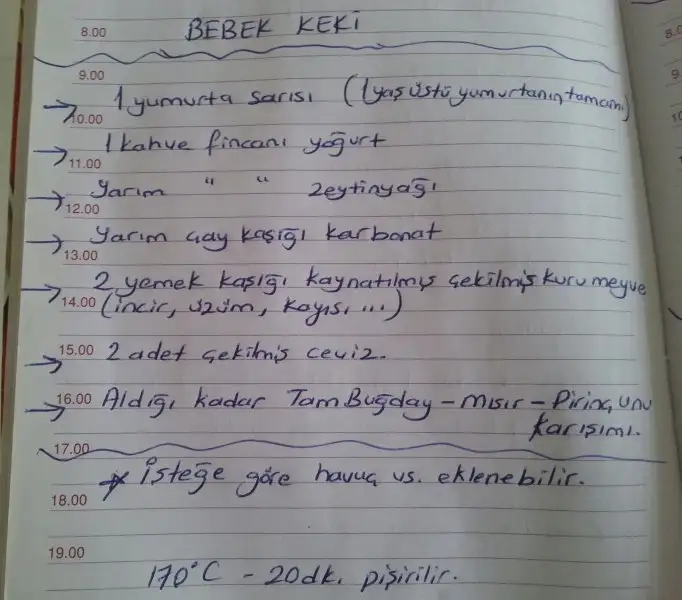 8.00 BEBEK KEKİ
9.00
1 yumurta sarısı (1 yaş üstü yumurtanın tamamı)
10.00
1 kahve fincanı yoğurt
11.00
Yarım " " zeytinyağı
12.00
Yarım çay kaşığı karbonat
13.00
2 yemek kaşığı kaynatılmış çekilmiş kuru meyve
14.00 (incir, üzüm, kayısı, ...)
15.00 2 adet çekilmiş ceviz.
16.00 Aldığı kadar Tam Buğday - Mısır - Pirinç unu
karışımı.
17.00
* İsteğe göre havuç vs. eklenebilir.
18.00
19.00
170°C - 20dk. pişirilir.
8.0
9
10